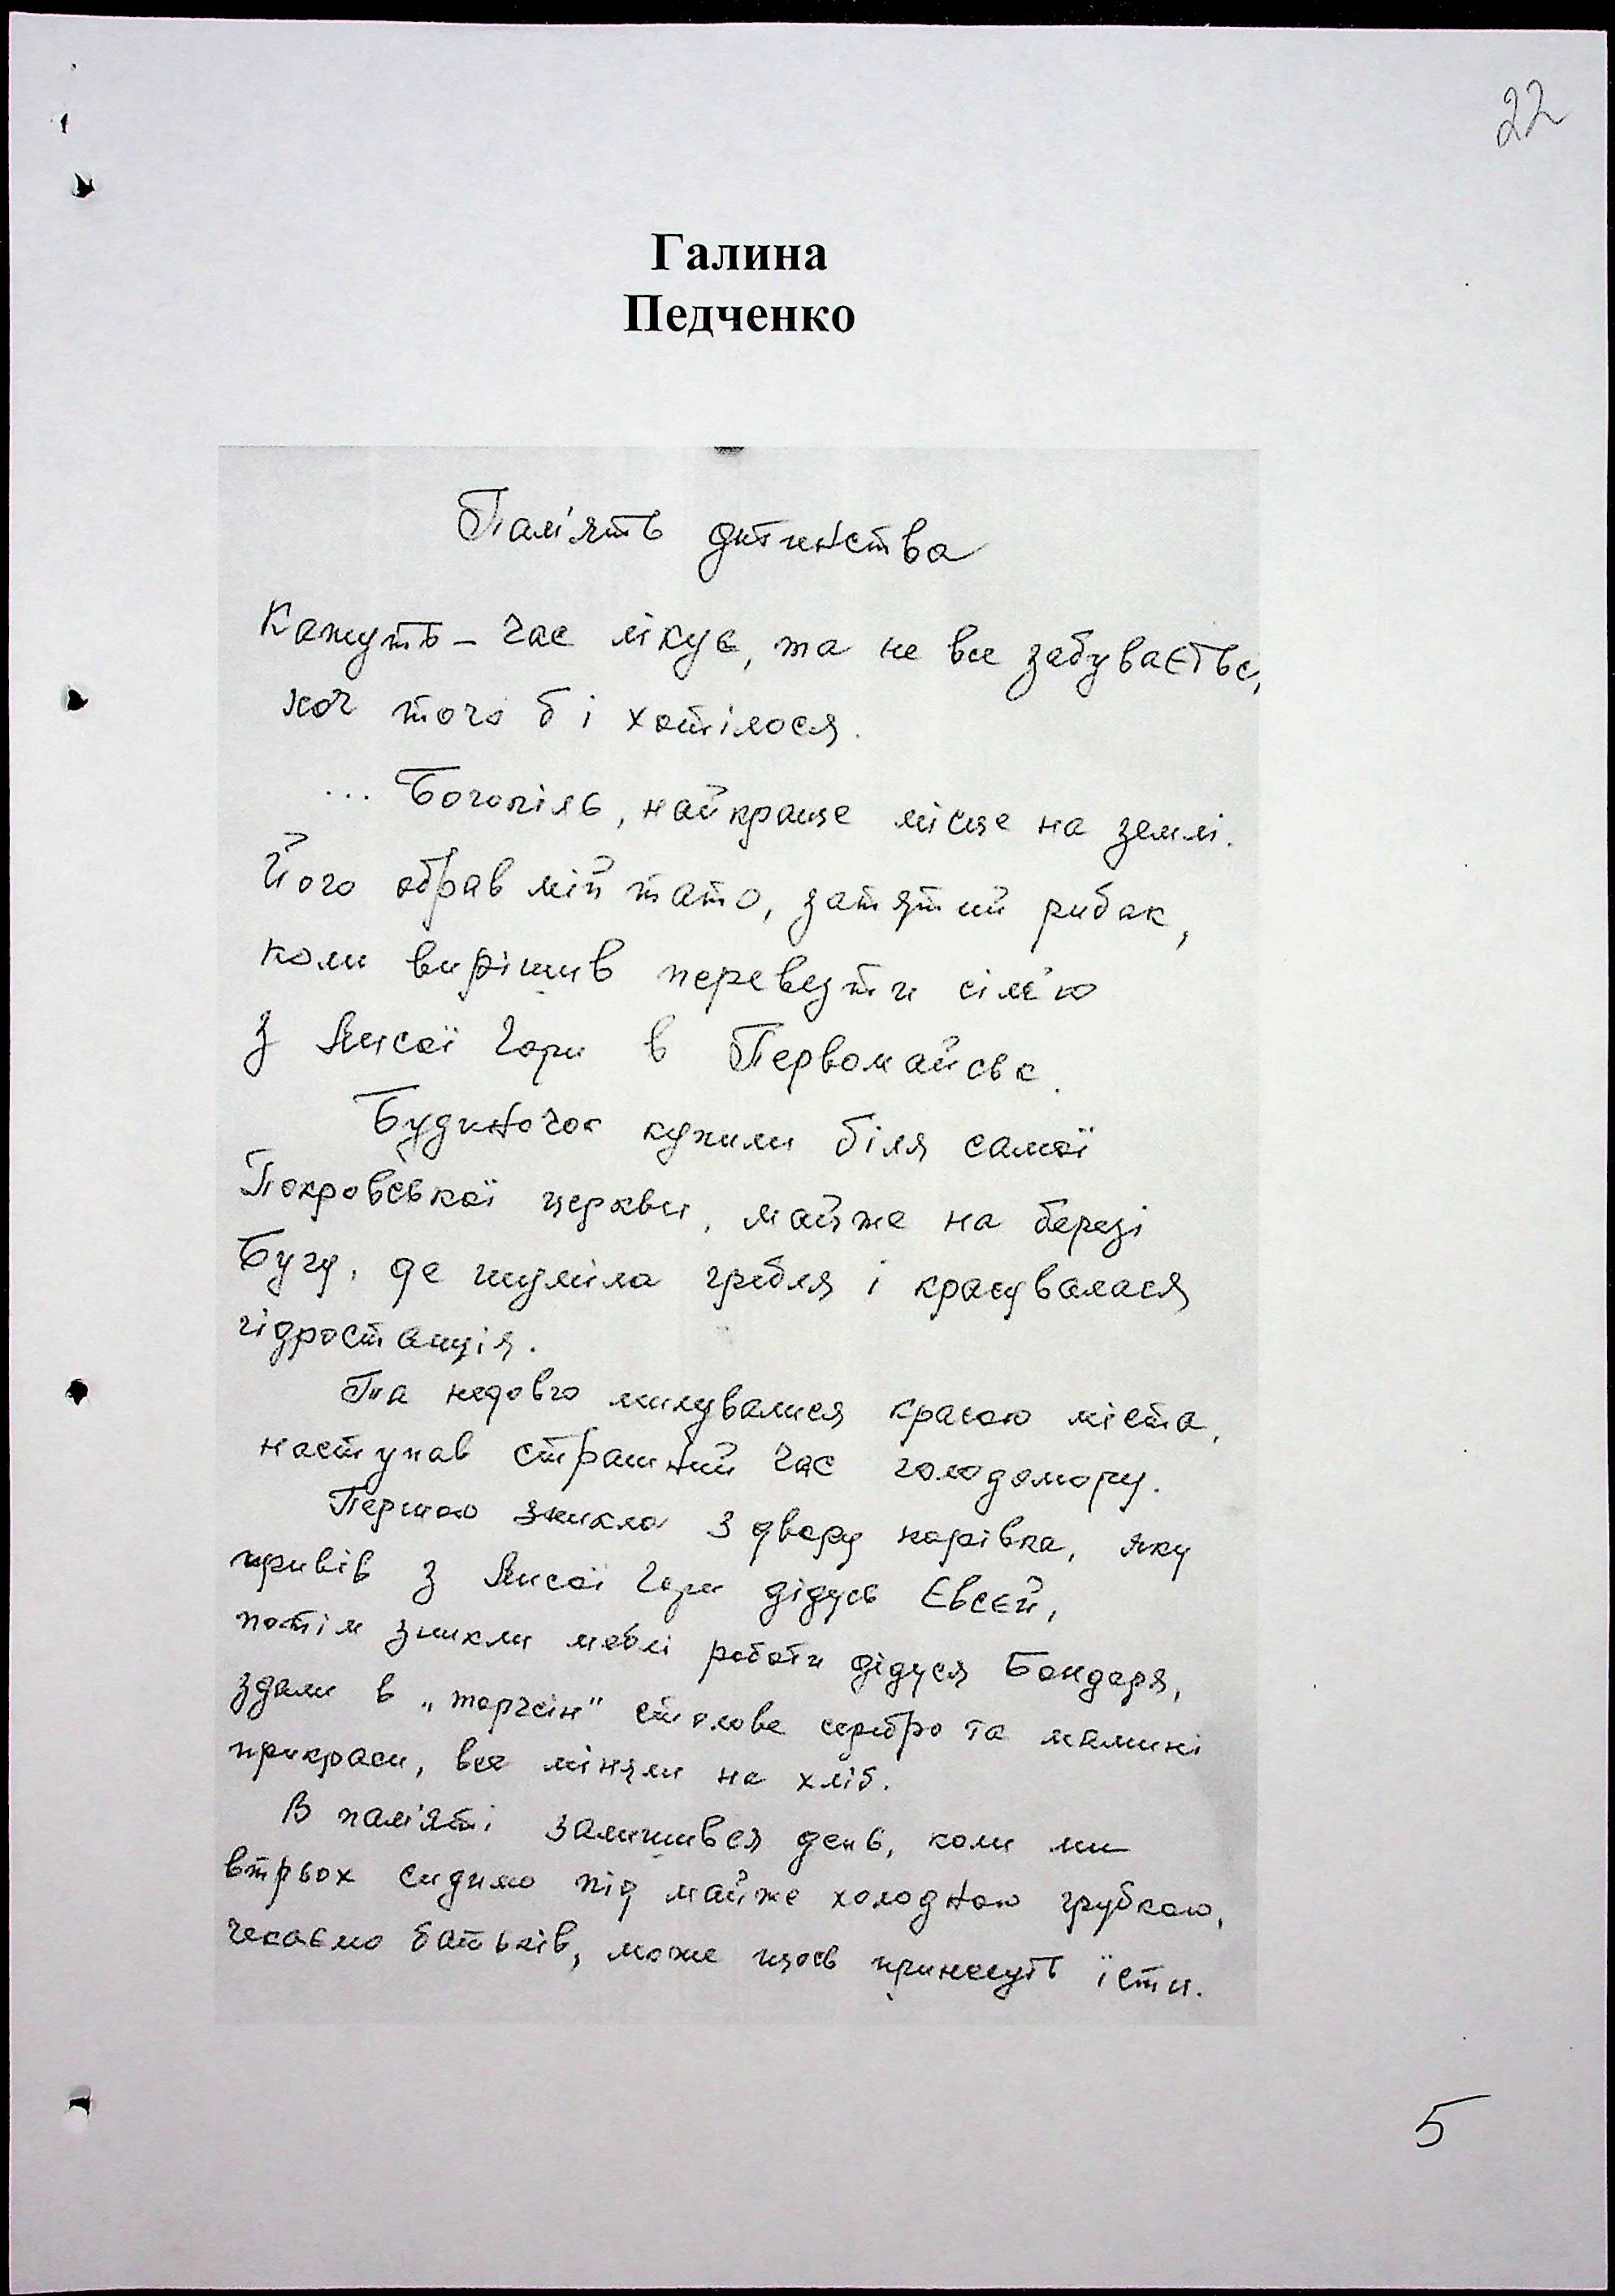 22
Галина
Педченко
Пам'ять дитинства
Кажуть – час лікує, та не все забувається,
хоч того б і хотілося.
... Богопіль, найкраще місце на землі.
Його обрав мій тато, затятий рибак,
коли вирішив перевезти сім'ю
з Лисої Гори в Первомайськ.
Будиночок купили біля самої
Покровської церкви, майже на березі
Бугу, де шуміла гребля і красувалася
гідростанція.
Та недовго милувалися красою міста,
наступав страшний час голодомору.
Першою зникла з двору корівка, яку
привів з Лисої Гори дідусь Євсей,
потім зникли меблі роботи дідуся Бондаря,
здали в „торгсін" столове серебро та мамині
прикраси, все міняли на хліб.
В пам'яті залишився день, коли ми
втрьох сидимо під майже холодною грубкою,
чекаємо батьків, може щось принесуть їсти.
5